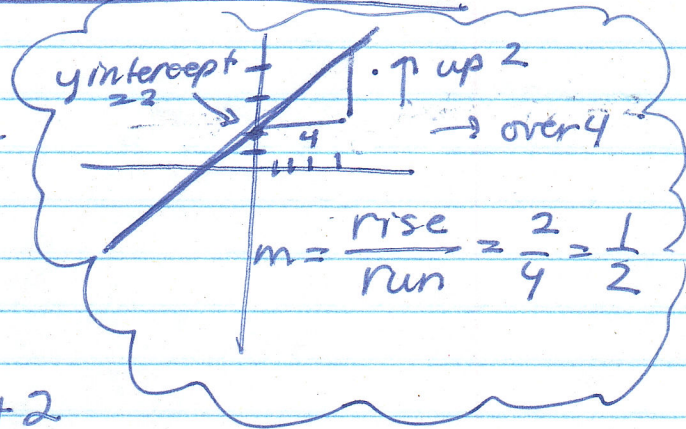 y intercept
= 2
↑ up 2
4
→ over 4
m = rise/run = 2/4 = 1/2
+ 2